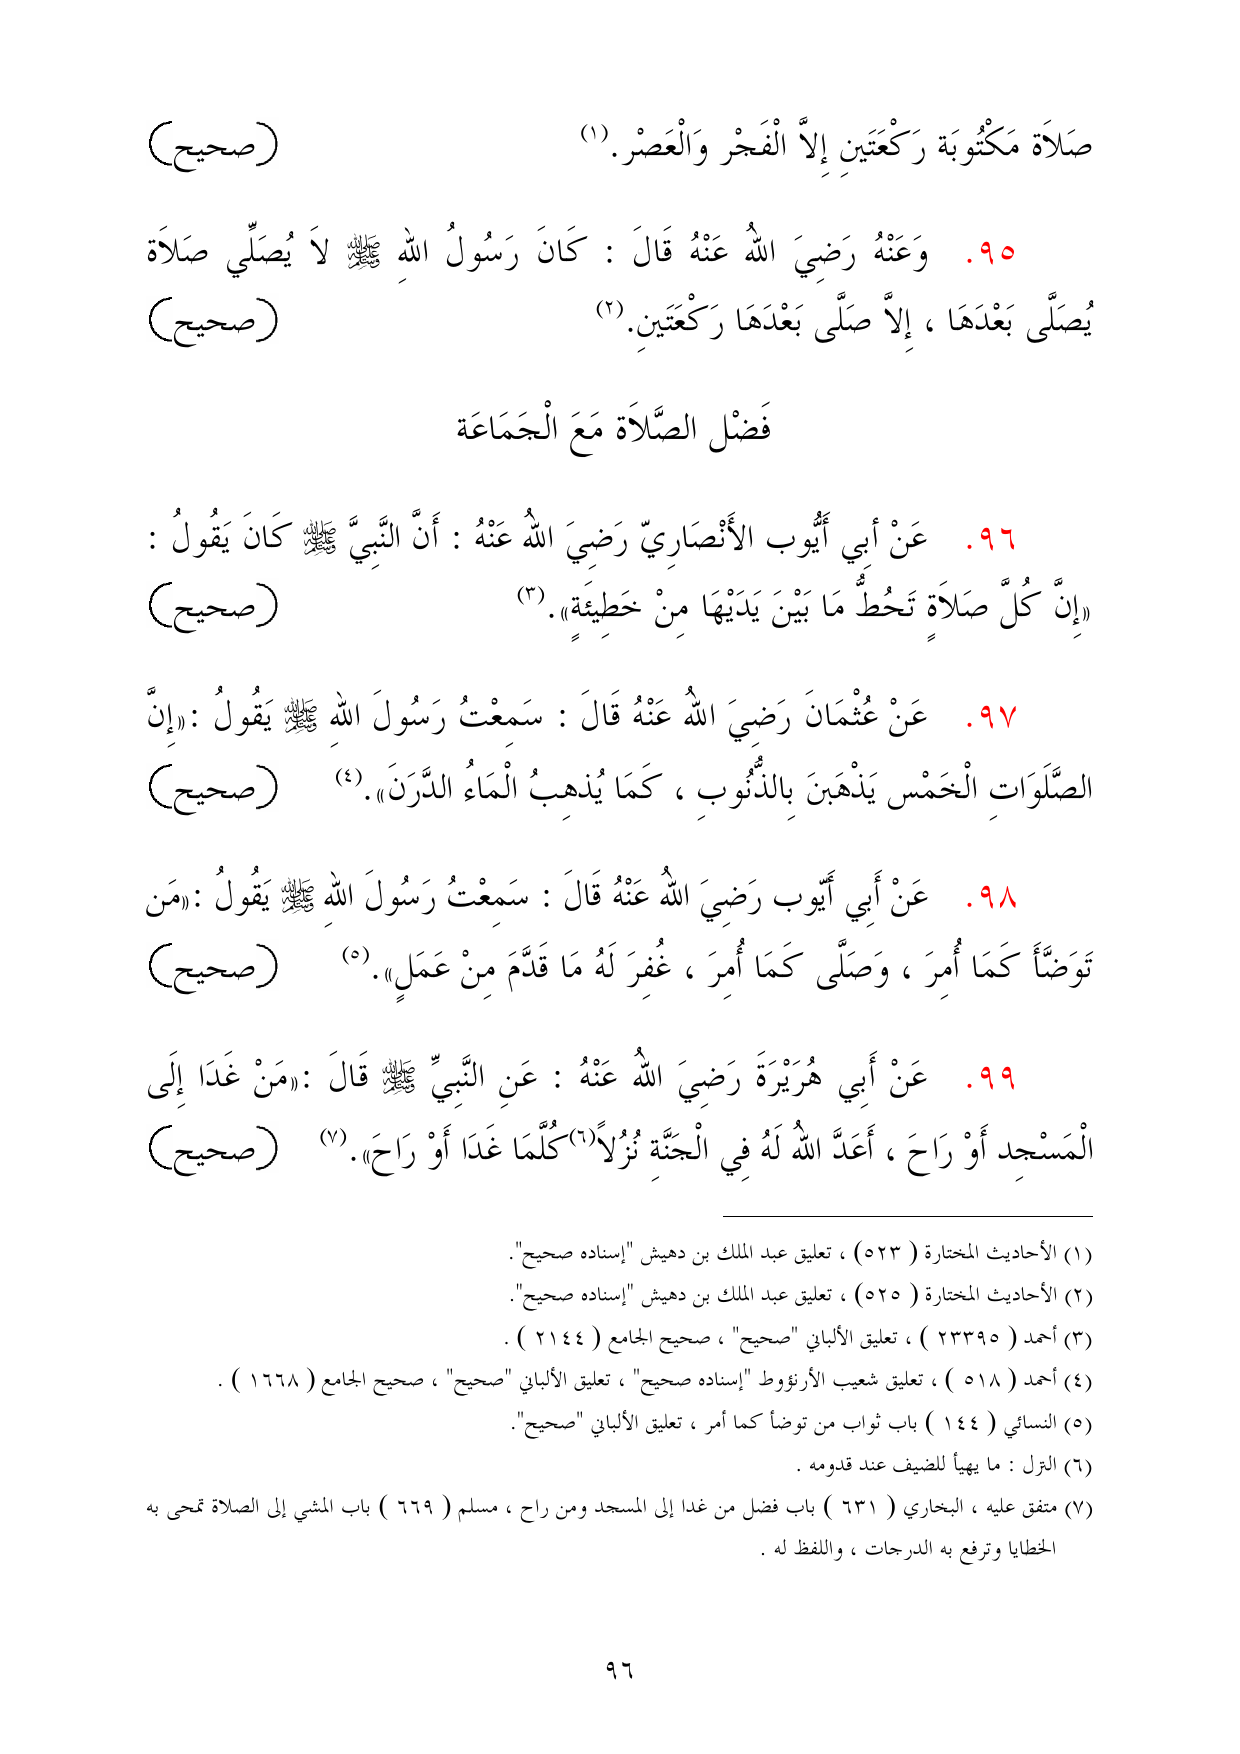 صَلاَة مَكْتُوبَة رَكْعَتَينِ إِلاَّ الْفَجْر وَالْعَصْر.(١) (صحيح)
٩٥. وَعَنْهُ رَضِيَ اللهُ عَنْهُ قَالَ : كَانَ رَسُولُ اللهِ ﷺ لاَ يُصَلِّي صَلاَة
يُصَلَّى بَعْدَهَا ، إِلاَّ صَلَّى بَعْدَهَا رَكْعَتَينِ.(٢) (صحيح)
فَضْل الصَّلاَة مَعَ الْجَمَاعَة
٩٦. عَنْ أبِي أَيُّوب الأَنْصَارِيّ رَضِيَ اللهُ عَنْهُ : أَنَّ النَّبِيَّ ﷺ كَانَ يَقُولُ :
«إِنَّ كُلَّ صَلاَةٍ تَحُطُّ مَا بَيْنَ يَدَيْهَا مِنْ خَطِيئَةٍ».(٣) (صحيح)
٩٧. عَنْ عُثْمَانَ رَضِيَ اللهُ عَنْهُ قَالَ : سَمِعْتُ رَسُولَ اللهِ ﷺ يَقُولُ :«إِنَّ
الصَّلَوَاتِ الْخَمْس يَذْهَبنَ بِالذُّنُوبِ ، كَمَا يُذهِبُ الْمَاءُ الدَّرَنَ».(٤) (صحيح)
٩٨. عَنْ أَبِي أَيّوب رَضِيَ اللهُ عَنْهُ قَالَ : سَمِعْتُ رَسُولَ اللهِ ﷺ يَقُولُ :«مَن
تَوَضَّأَ كَمَا أُمِرَ ، وَصَلَّى كَمَا أُمِرَ ، غُفِرَ لَهُ مَا قَدَّمَ مِنْ عَمَلٍ».(٥) (صحيح)
٩٩. عَنْ أَبِي هُرَيْرَةَ رَضِيَ اللهُ عَنْهُ : عَنِ النَّبِيِّ ﷺ قَالَ :«مَنْ غَدَا إِلَى
الْمَسْجِد أَوْ رَاحَ ، أَعَدَّ اللهُ لَهُ فِي الْجَنَّةِ نُزُلاً(٦)كُلَّمَا غَدَا أَوْ رَاحَ».(٧) (صحيح)
(١) الأحاديث المختارة ( ٥٢٣) ، تعليق عبد الملك بن دهيش "إسناده صحيح".
(٢) الأحاديث المختارة ( ٥٢٥) ، تعليق عبد الملك بن دهيش "إسناده صحيح".
(٣) أحمد ( ٢٣٣٩٥ ) ، تعليق الألباني "صحيح" ، صحيح الجامع ( ٢١٤٤ ) .
(٤) أحمد ( ٥١٨ ) ، تعليق شعيب الأرنؤوط "إسناده صحيح" ، تعليق الألباني "صحيح" ، صحيح الجامع ( ١٦٦٨ ) .
(٥) النسائي ( ١٤٤ ) باب ثواب من توضأ كما أمر ، تعليق الألباني "صحيح".
(٦) النزل : ما يهيأ للضيف عند قدومه .
(٧) متفق عليه ، البخاري ( ٦٣١ ) باب فضل من غدا إلى المسجد ومن راح ، مسلم ( ٦٦٩ ) باب المشي إلى الصلاة تمحى به
الخطايا وترفع به الدرجات ، واللفظ له .
٩٦